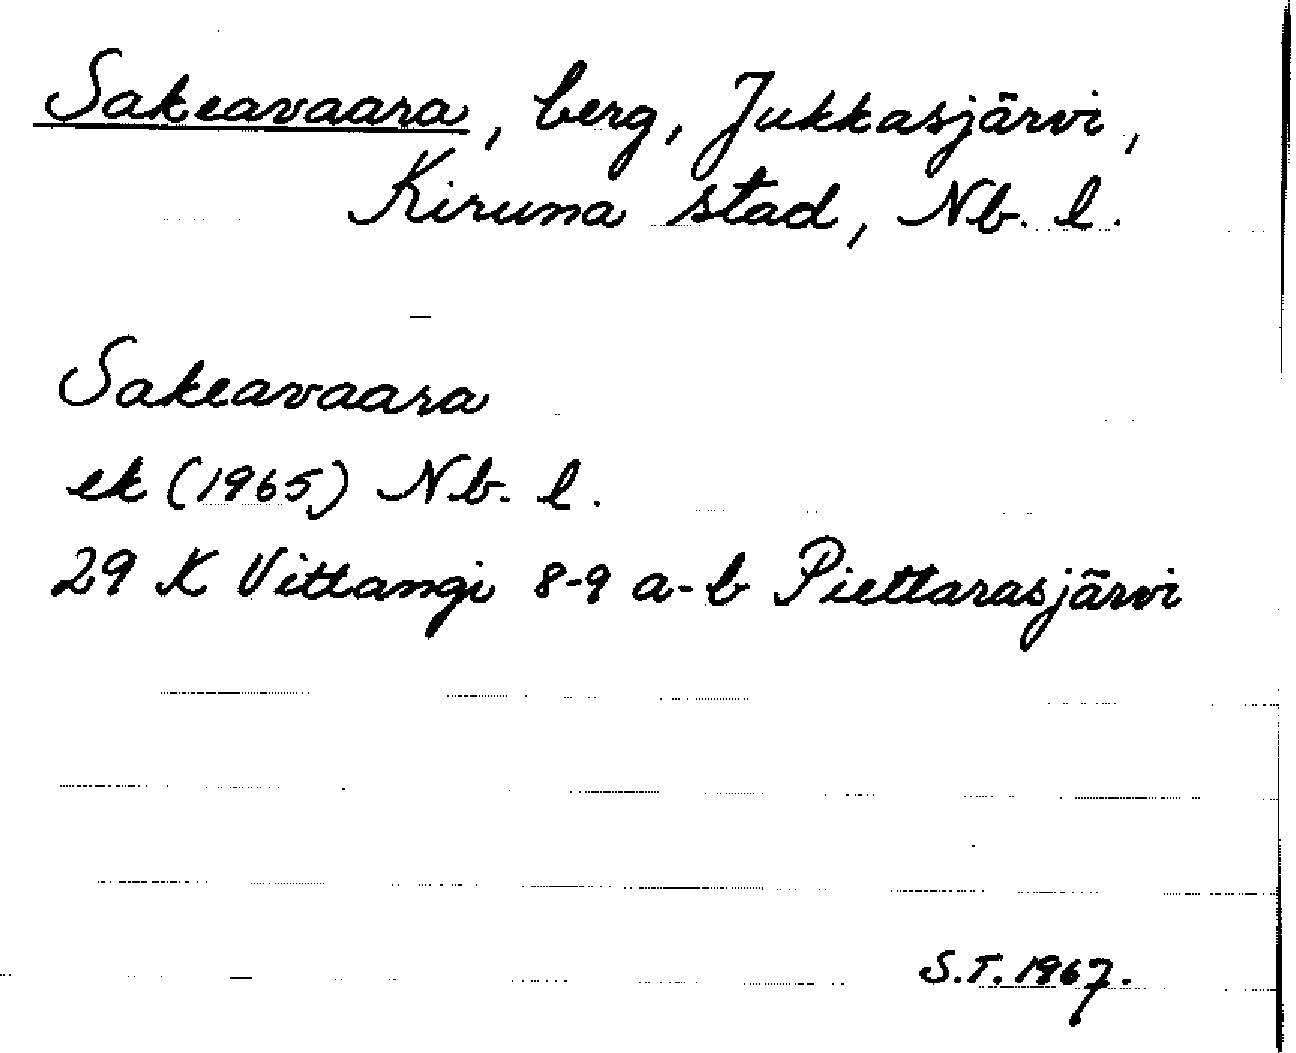 Sakeavaara, berg, Jukkasjärvi,
Kiruna stad, Nb. l.
Sakeavaara
ek (1965) Nb. l.
29 K Vittangi 8-9 a-b Piettarasjärvi
S.T. 1967.